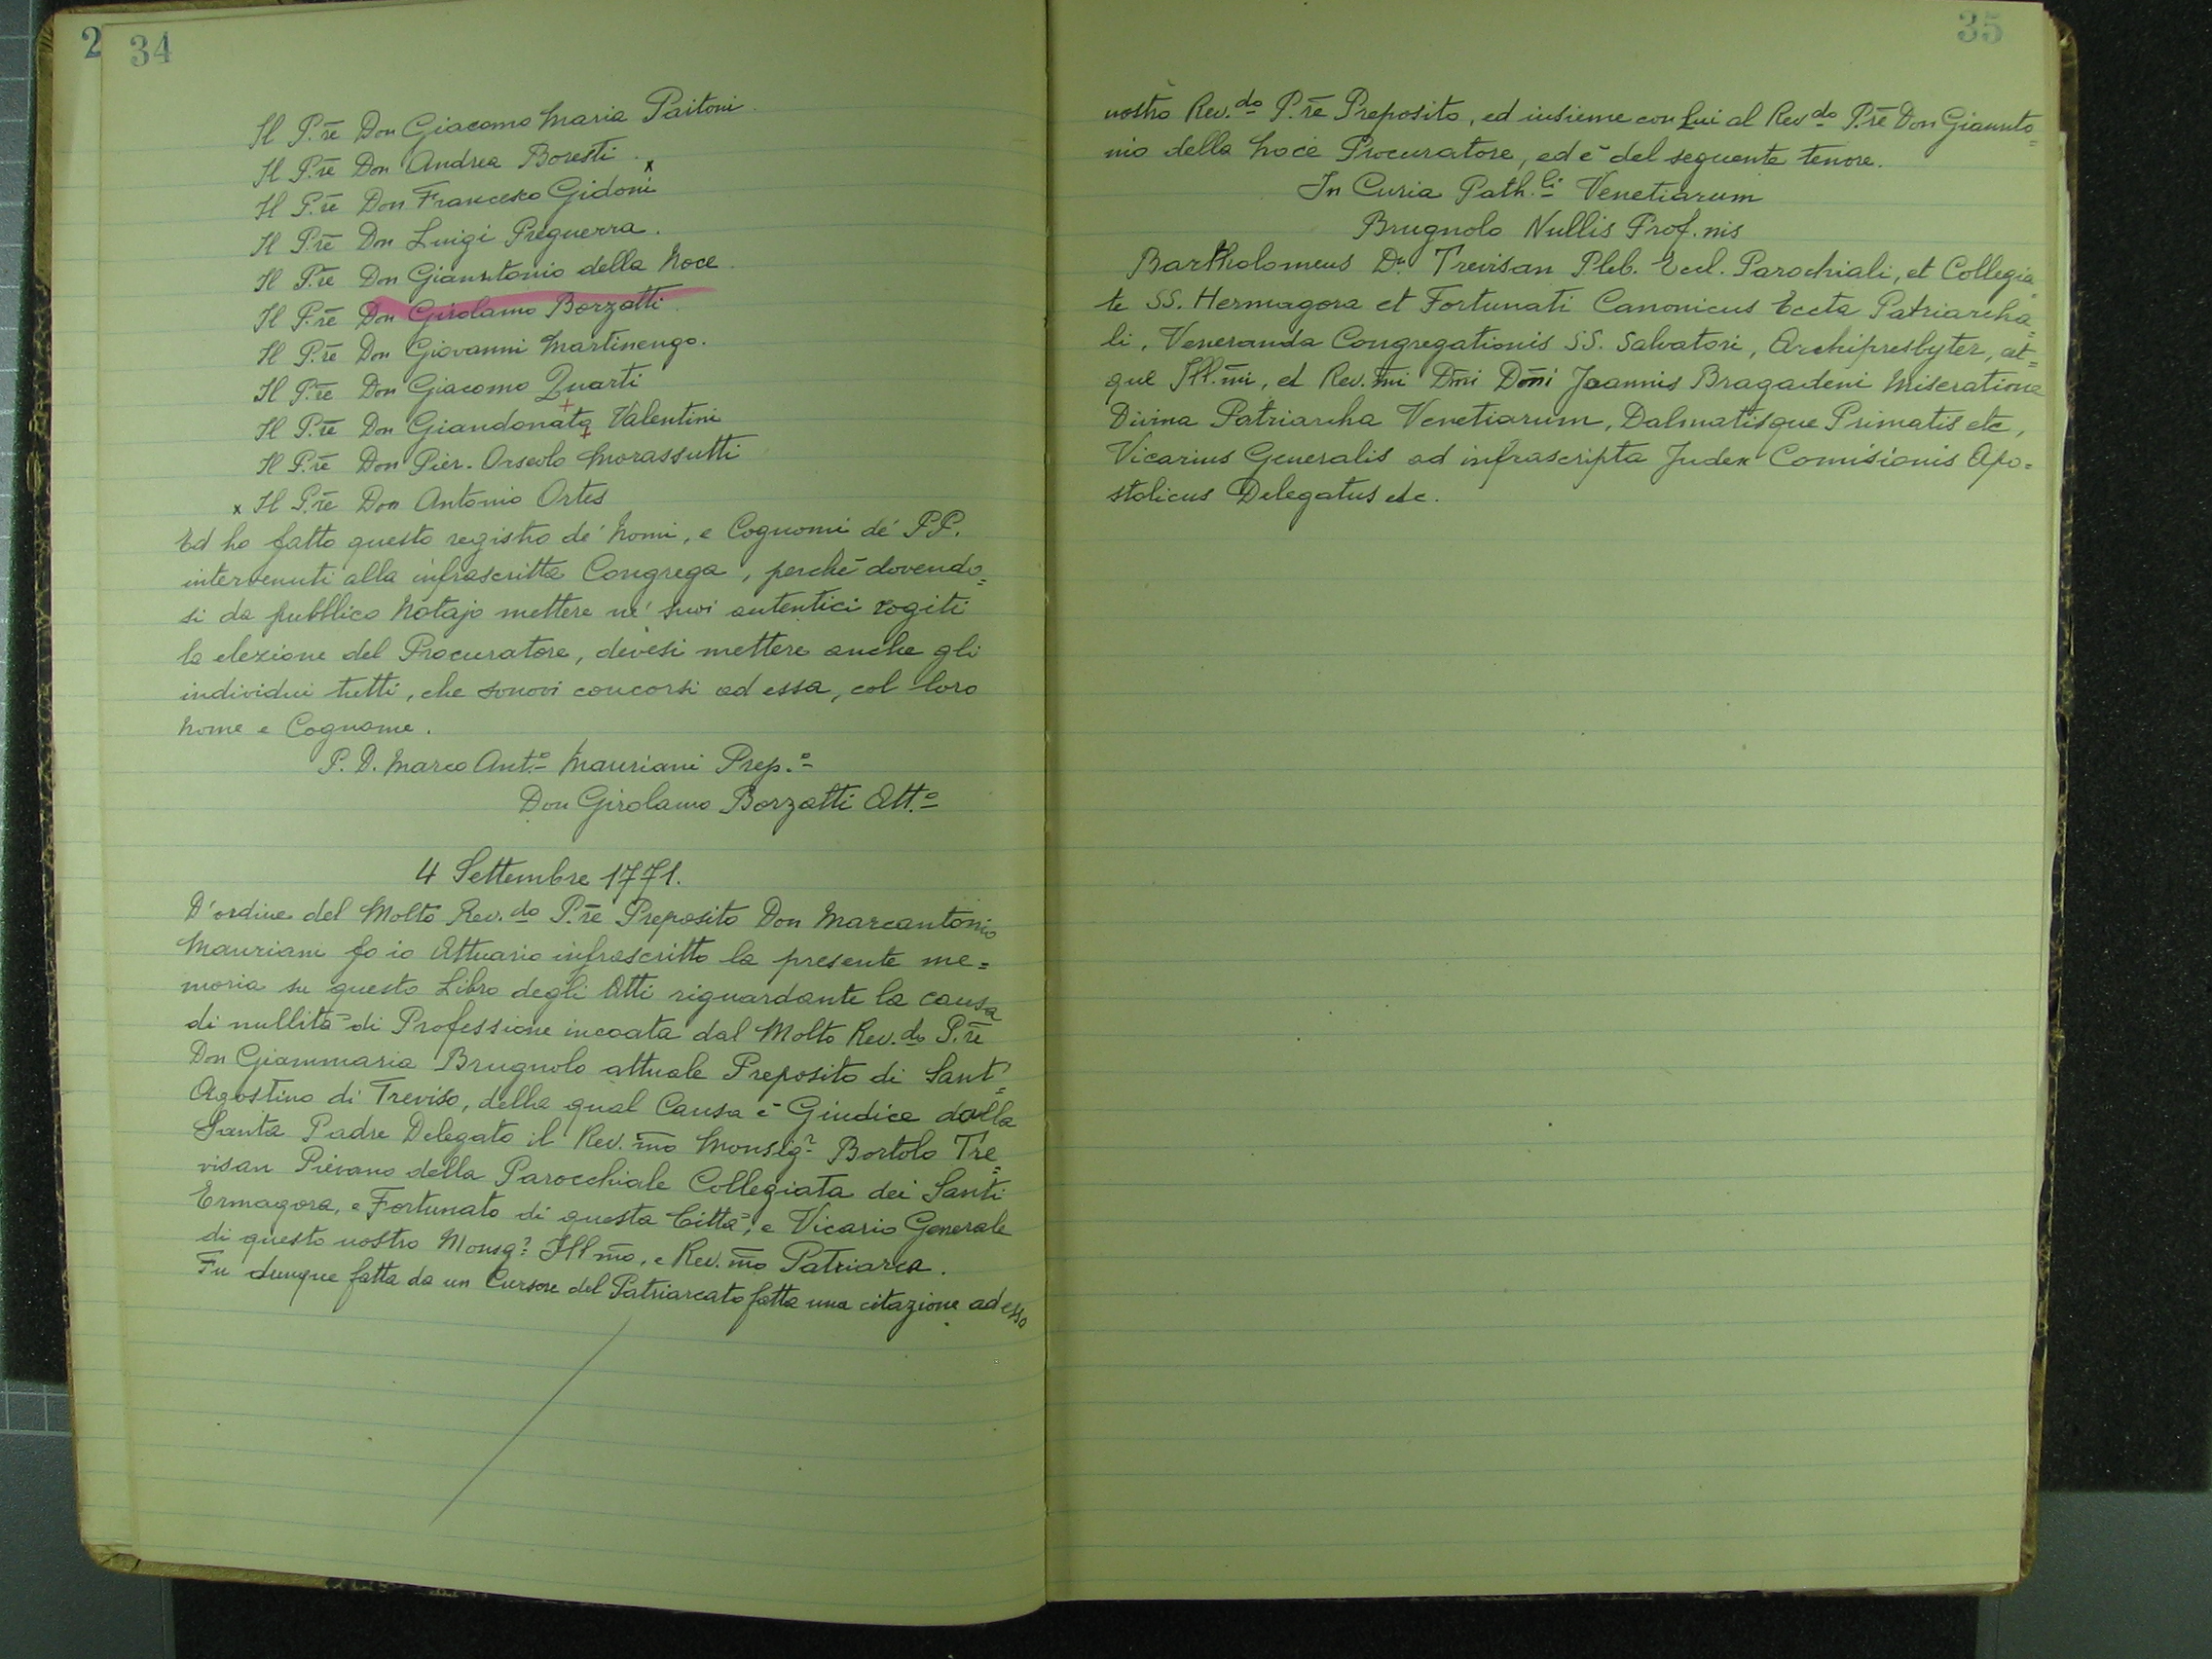 2 34
Il P.re Don Giacomo Maria Paitoni.
Il P.re Don Andrea Boresti.
Il P.re Don Francesco Gidoni x
Il P.re Don Luigi Preguerra.
Il P.re Don Giannantonio della Noce.
Il P.re Don Girolamo Borzatti.
Il P.re Don Giovanni Martinengo.
Il P.re Don Giacomo Quarti
Il P.re Don Giandonato Valentini
Il P.re Don Pier-Orseolo Morassutti
x Il P.re Don Antonio Ortes
Ed ho fatto questo registro de' Nomi, e Cognomi de' PP.
intervenuti alla infrascritta Congrega, perchè dovendo=
si da pubblico Notajo mettere ne' suoi autentici rogiti
la elezione del Procuratore, devesi mettere anche gli
individui tutti, che sonovi concorsi ad essa, col loro
Nome e Cognome.
P. D. Marco Ant.o Mauriani Prep.o
Don Girolamo Borzatti Att.o
4 Settembre 1771.
D'ordine del Molto Rev.do P.re Preposito Don Marcantonio
Mauriani fo io Attuario infrascritto la presente me=
moria su questo Libro degli Atti riguardante la causa
di nullità di Professione incoata dal Molto Rev.do P.re
Don Giammaria Brugnolo attuale Preposito di Sant'=
Agostino di Treviso, della qual Causa è Giudice dalla
Santa Padre Delegato il Rev.mo Monsig.r Bortolo Tre=
visan Pievano della Parocchiale Collegiata dei Santi
Ermagora, e Fortunato di questa Città, e Vicario Generale
di questo nostro Monsg.r Ill.mo, e Rev.mo Patriarca.
Fu dunque fatta da un Cursore del Patriarcato fatta una citazione ad esso
35
nostro Rev.do P.re Preposito, ed insieme con Lui al Rev.do P.re Don Giannto=
nio della Noce Procuratore, ed è del seguente tenore.
In Curia Path.li Venetiarum
Brugnolo Nullis Prof.nis
Bartholomeus D.n Trevisan Pleb. Eccl. Parochiali, et Collegia=
te SS. Hermagora et Fortunati Canonicus Eccta Patriarcha=
li, Veneranda Congregationis SS. Salvatori, Archipresbyter, at=
que Ill.mi, et Rev.mi Dmi Doni Joannis Bragadeni Miseratione
Divina Patriarcha Venetiarum, Dalmatisque Primatis etc,
Vicarius Generalis ad infrascripta Judex Comisionis Apo=
stolicus Delegatus etc.